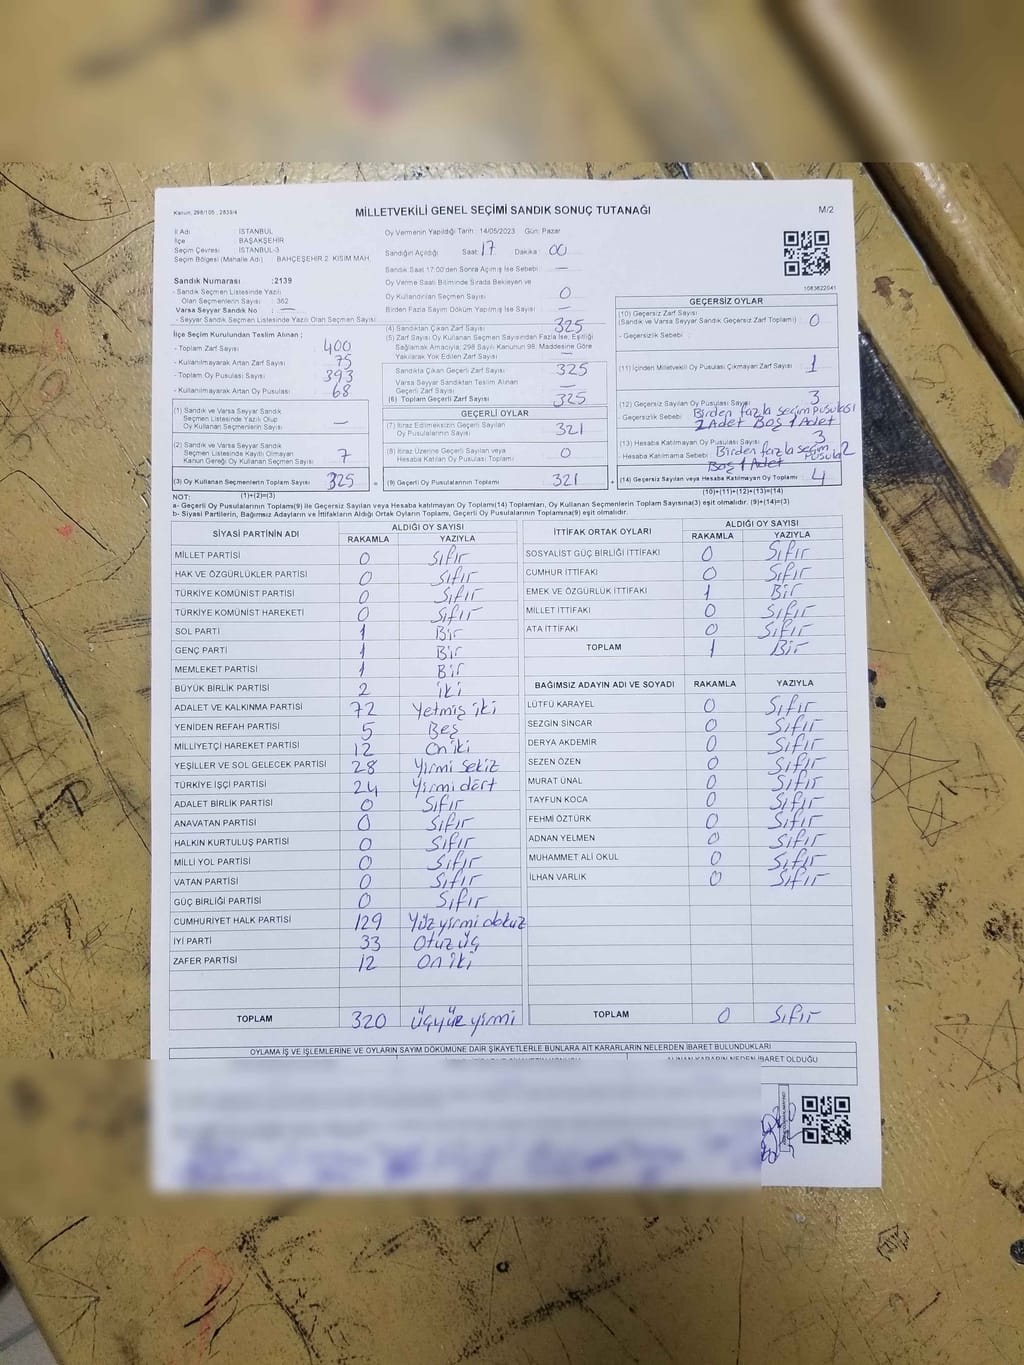 Kanun; 298/105 , 2839/4
MİLLETVEKİLİ GENEL SEÇİMİ SANDIK SONUÇ TUTANAĞI
M/2
İl Adı : İSTANBUL
İlçe : BAŞAKŞEHİR
Seçim Çevresi : İSTANBUL-3
Seçim Bölgesi (Mahalle Adı) : BAHÇEŞEHİR 2. KISIM MAH.
Sandık Numarası :2139
- Sandık Seçmen Listesinde Yazılı
Olan Seçmenlerin Sayısı : 362
Varsa Seyyar Sandık No : —
- Seyyar Sandık Seçmen Listesinde Yazılı Olan Seçmen Sayısı:
İlçe Seçim Kurulundan Teslim Alınan ;
- Toplam Zarf Sayısı : 400
- Kullanılmayarak Artan Zarf Sayısı : 75
- Toplam Oy Pusulası Sayısı : 393
- Kullanılmayarak Artan Oy Pusulası : 68
(1) Sandık ve Varsa Seyyar Sandık
Seçmen Listesinde Yazılı Olup
Oy Kullanan Seçmenlerin Sayısı —
(2) Sandık ve Varsa Seyyar Sandık
Seçmen Listesinde Kayıtlı Olmayan
Kanun Gereği Oy Kullanan Seçmen Sayısı 7
(3) Oy Kullanan Seçmenlerin Toplam Sayısı 325
Oy Vermenin Yapıldığı Tarih : 14/05/2023 Gün: Pazar
Sandığın Açıldığı Saat: 17 Dakika : 00
Sandık Saat 17:00'den Sonra Açılmış İse Sebebi : —
Oy Verme Saati Bitiminde Sırada Bekleyen ve
Oy Kullandırılan Seçmen Sayısı : 0
Birden Fazla Sayım Döküm Yapılmış İse Sayısı : —
(4) Sandıktan Çıkan Zarf Sayısı : 325
(5) Zarf Sayısı Oy Kullanan Seçmen Sayısından Fazla İse, Eşitliği
Sağlamak Amacıyla, 298 Sayılı Kanunun 98. Maddesine Göre
Yakılarak Yok Edilen Zarf Sayısı : —
Sandıkta Çıkan Geçerli Zarf Sayısı : 325
Varsa Seyyar Sandıktan Teslim Alınan
Geçerli Zarf Sayısı : —
(6) Toplam Geçerli Zarf Sayısı : 325
GEÇERLİ OYLAR
(7) İtiraz Edilmeksizin Geçerli Sayılan
Oy Pusulalarının Sayısı : 321
(8) İtiraz Üzerine Geçerli Sayılan veya
Hesaba Katılan Oy Pusulası Toplamı : 0
= (9) Geçerli Oy Pusulalarının Toplamı : 321 +
1083622041
GEÇERSİZ OYLAR
(10) Geçersiz Zarf Sayısı
(Sandık ve Varsa Seyyar Sandık Geçersiz Zarf Toplamı) : 0
- Geçersizlik Sebebi :
(11) İçinden Milletvekili Oy Pusulası Çıkmayan Zarf Sayısı : 1
(12) Geçersiz Sayılan Oy Pusulası Sayısı : 3
- Geçersizlik Sebebi : Birden fazla seçim pusulası
2 Adet Boş 1 Adet
(13) Hesaba Katılmayan Oy Pusulası Sayısı : 3
- Hesaba Katılmama Sebebi : Birden fazla seçim
pusula 2
Boş 1 Adet
(14) Geçersiz Sayılan veya Hesaba Katılmayan Oy Toplamı : 4
NOT: (1)+(2)=(3) (10)+(11)+(12)+(13)=(14)
a- Geçerli Oy Pusulalarının Toplamı(9) ile Geçersiz Sayılan veya Hesaba katılmayan Oy Toplamı(14) Toplamları, Oy Kullanan Seçmenlerin Toplam Sayısına(3) eşit olmalıdır. (9)+(14)=(3)
b- Siyasi Partilerin, Bağımsız Adayların ve İttifakların Aldığı Ortak Oyların Toplamı, Geçerli Oy Pusulalarının Toplamına(9) eşit olmalıdır.
SİYASİ PARTİNİN ADI ALDIĞI OY SAYISI
RAKAMLA YAZIYLA
MİLLET PARTİSİ 0 Sıfır
HAK VE ÖZGÜRLÜKLER PARTİSİ 0 Sıfır
TÜRKİYE KOMÜNİST PARTİSİ 0 Sıfır
TÜRKİYE KOMÜNİST HAREKETİ 0 Sıfır
SOL PARTİ 1 Bir
GENÇ PARTİ 1 Bir
MEMLEKET PARTİSİ 1 Bir
BÜYÜK BİRLİK PARTİSİ 2 iki
ADALET VE KALKINMA PARTİSİ 72 Yetmiş iki
YENİDEN REFAH PARTİSİ 5 Beş
MİLLİYETÇİ HAREKET PARTİSİ 12 On iki
YEŞİLLER VE SOL GELECEK PARTİSİ 28 Yirmi sekiz
TÜRKİYE İŞÇİ PARTİSİ 24 Yirmi dört
ADALET BİRLİK PARTİSİ 0 Sıfır
ANAVATAN PARTİSİ 0 Sıfır
HALKIN KURTULUŞ PARTİSİ 0 Sıfır
MİLLİ YOL PARTİSİ 0 Sıfır
VATAN PARTİSİ 0 Sıfır
GÜÇ BİRLİĞİ PARTİSİ 0 Sıfır
CUMHURİYET HALK PARTİSİ 129 Yüz yirmi dokuz
İYİ PARTİ 33 Otuz üç
ZAFER PARTİSİ 12 On iki
TOPLAM 320 üçyüz yirmi
İTTİFAK ORTAK OYLARI ALDIĞI OY SAYISI
RAKAMLA YAZIYLA
SOSYALİST GÜÇ BİRLİĞİ İTTİFAKI 0 Sıfır
CUMHUR İTTİFAKI 0 Sıfır
EMEK VE ÖZGÜRLÜK İTTİFAKI 1 Bir
MİLLET İTTİFAKI 0 Sıfır
ATA İTTİFAKI 0 Sıfır
TOPLAM 1 Bir
BAĞIMSIZ ADAYIN ADI VE SOYADI RAKAMLA YAZIYLA
LÜTFÜ KARAYEL 0 Sıfır
SEZGİN SİNCAR 0 Sıfır
DERYA AKDEMİR 0 Sıfır
SEZEN ÖZEN 0 Sıfır
MURAT ÜNAL 0 Sıfır
TAYFUN KOCA 0 Sıfır
FEHMİ ÖZTÜRK 0 Sıfır
ADNAN YELMEN 0 Sıfır
MUHAMMET ALİ OKUL 0 Sıfır
İLHAN VARLIK 0 Sıfır
TOPLAM 0 Sıfır
OYLAMA İŞ VE İŞLEMLERİNE VE OYLARIN SAYIM DÖKÜMÜNE DAİR ŞİKAYETLERLE BUNLARA AİT KARARLARIN NELERDEN İBARET BULUNDUKLARI
ALINAN KARARIN NEDEN İBARET OLDUĞU